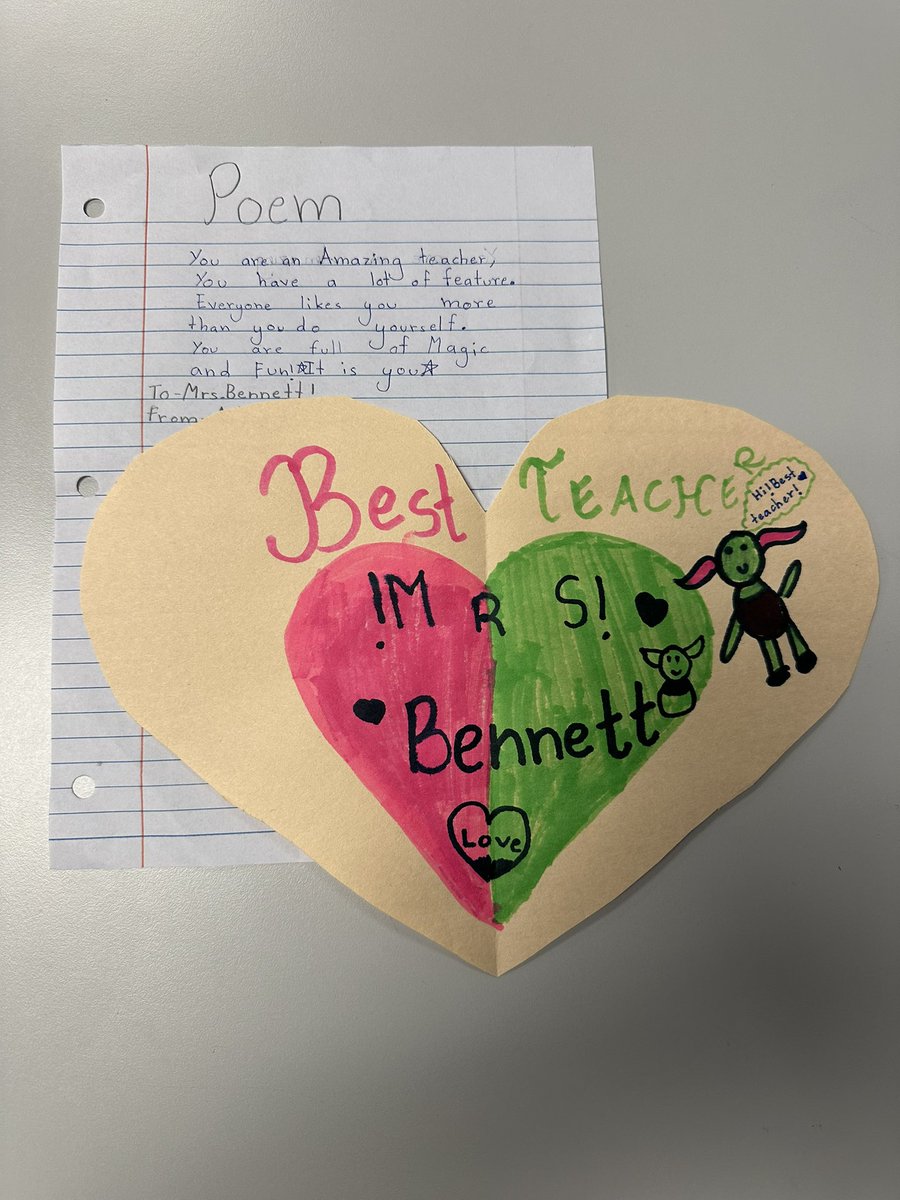 Poem
You are an Amazing teacher,
You have a lot of feature.
Everyone likes you more
than you do yourself.
You are full of Magic
and Fun!☆It is you☆
To-Mrs.Bennett!
From-
Best TEACHER
Hi!Best
teacher!
!M R S!
Bennett
Love